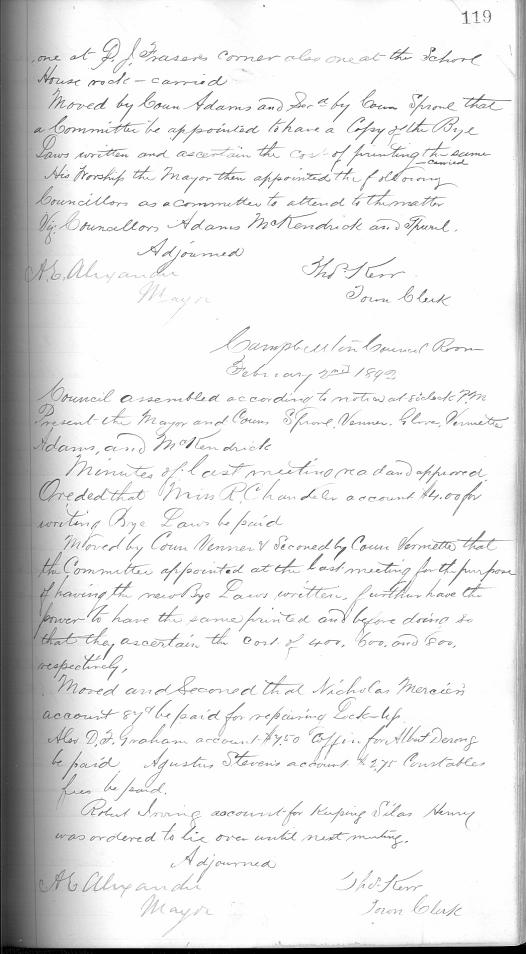 119
one at D. J. Frasers corner also one at the School
House rock – carried
Moved by Coun Adams and Secd by Coun Sproul that
a Committee be appointed to have a Copy of the Bye
Laws written and ascertain the cost of printing the same
carried
His Worship the Mayor then appointed the following
Councillors as a committee to attend to the matter
Viz. Councillors Adams McKendrick and Sproul.
Adjourned
A. E. Alexander Thos. Kerr
Mayor Town Clerk
Campbellton Council Room
February 2nd 1892
Council assembled according to notice at 8 oclock P.M
Present the Mayor and Couns Sproul, Venner, Vermette
Adams, and McKendrick
Minutes of last meeting read and approved
Oreded that Miss R. Chandler account $4.00 for
writing Bye Laws be paid
Moved by Coun Venner & Seconed by Coun Vermette that
the Committee appointed at the last meeting for the purpose
of having the new Bye Laws written, further have the
power to have the same printed and before doing so
that they ascertain the cost of 400, 600, and 800,
respectively,
Moved and Seconed that Nicholas Mercier's
account be paid for repairing Lock-Up,
Also D. F. Graham account $7.50 Coffin for Albert
be paid Agustus Stevens account $2.75 Constables
fees be paid.
Robert Irving account for keeping Silas Henry
was ordered to lie over until next meeting.
Adjourned
A E Alexander Thos. Kerr
Mayor Town Clerk